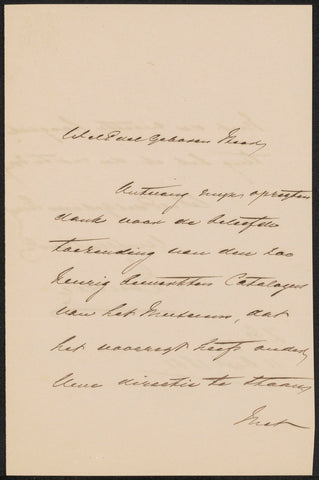 WelEdel Geboren Heer,
Ontvang mijn opregten
dank voor de beleefde
toezending van den zoo
keurig bewerkten Catalogus
van het Museum, dat
het voorregt heeft onder
Uwe directie te staan
Met